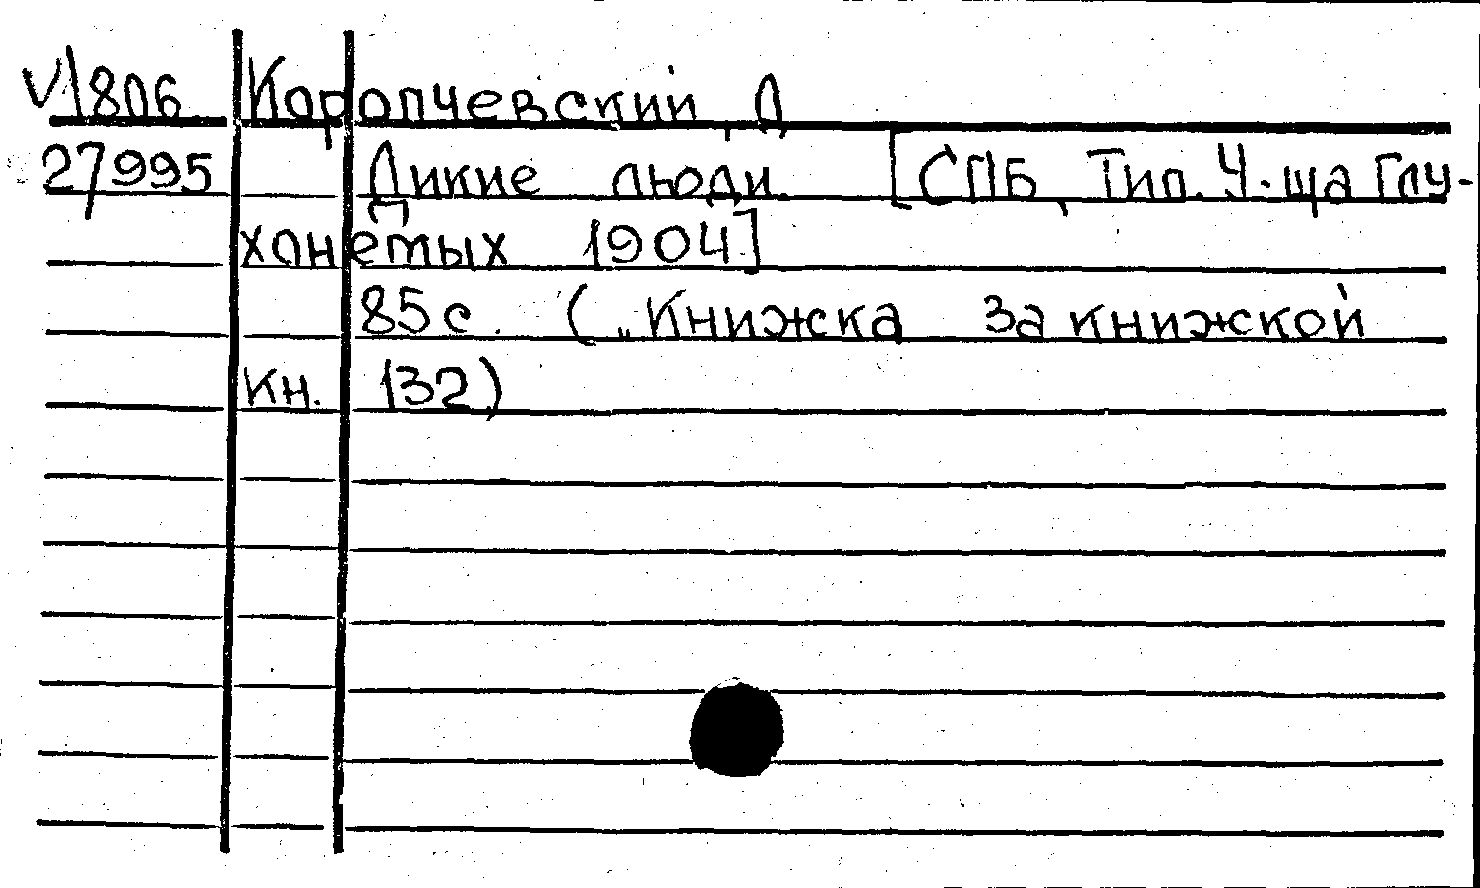 V1806 Коропчевский, Д
27995 Дикие люди. [СПБ, Тип. Уч-ща Глу-
хонемых 1904]
85 с. („Книжка за книжкой
кн. 132)